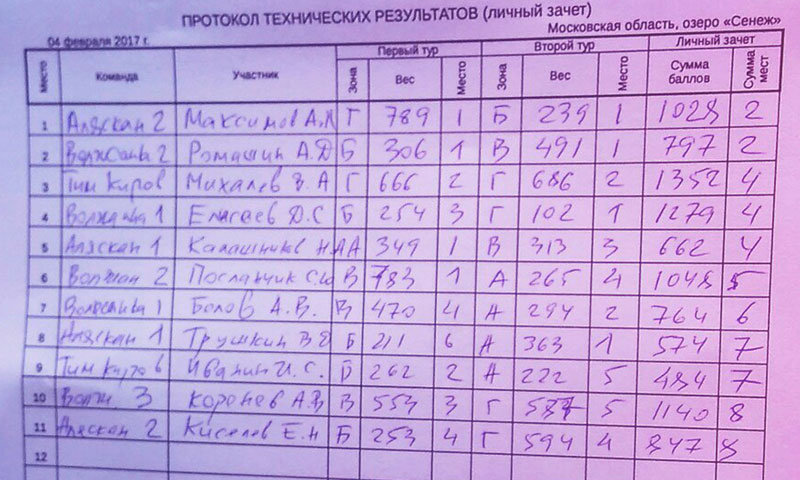 ПРОТОКОЛ ТЕХНИЧЕСКИХ РЕЗУЛЬТАТОВ (личный зачет)
04 февраля 2017 г. Московская область, озеро «Сенеж»
Место Команда Участник Первый тур Второй тур Личный зачет
Зона Вес Место Зона Вес Место Сумма баллов Сумма мест
1 Аляскан 2 Максимов А. Г 789 1 Б 239 1 1028 2
2 2 Ромашин А.Д Б 306 1 В 491 1 797 2
3 Тим Киров Михалев В. А Г 666 2 Г 686 2 1352 4
4 1 Елисеев Д.С Б 254 3 Г 102 1 1279 4
5 Аляскан 1 Калашников Н.А А 349 1 В 313 3 662 4
6 Волжан 2 Посланчик В 783 1 А 265 4 1048 5
7 1 Болов А.В. В 470 4 А 294 2 764 6
8 Аляскан 1 Трушкин В Б 211 6 А 363 1 574 7
9 Тим Киров Иванин И. С. Б 262 2 А 222 5 484 7
10 3 Коренев А.В В 553 3 Г 5 1140 8
11 Аляскан 2 Киселев Е.Н Б 253 4 Г 594 4 847 8
12